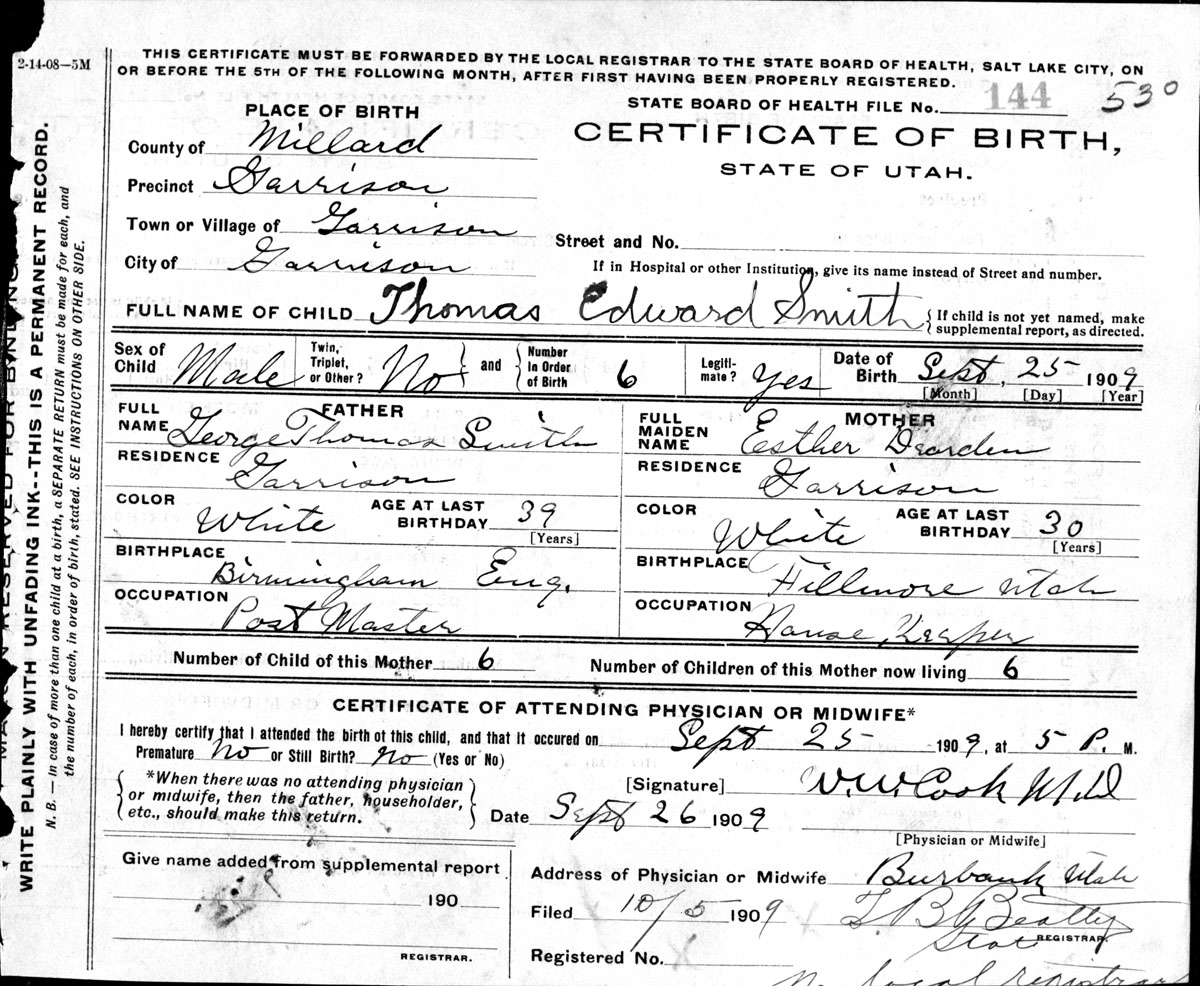 2-14-08—5M
THIS CERTIFICATE MUST BE FORWARDED BY THE LOCAL REGISTRAR TO THE STATE BOARD OF HEALTH, SALT LAKE CITY, ON
OR BEFORE THE 5TH OF THE FOLLOWING MONTH, AFTER FIRST HAVING BEEN PROPERLY REGISTERED.
STATE BOARD OF HEALTH FILE No. 144 530
PLACE OF BIRTH
CERTIFICATE OF BIRTH,
STATE OF UTAH.
County of Millard
Precinct Garrison
Town or Village of Garrison
Street and No.
City of Garrison
If in Hospital or other Institution, give its name instead of Street and number.
FULL NAME OF CHILD Thomas Edward Smith { If child is not yet named, make
supplemental report, as directed.
Sex of Child Male Twin, Triplet, or Other? No and Number In Order of Birth 6 Legiti- mate? Yes Date of Birth Sept, 25 1909
[Month] [Day] [Year]
FATHER
FULL NAME George Thomas Smith
RESIDENCE Garrison
COLOR White AGE AT LAST BIRTHDAY 39 [Years]
BIRTHPLACE Birmingham Eng.
OCCUPATION Post Master
MOTHER
FULL MAIDEN NAME Esther Dearden
RESIDENCE Garrison
COLOR White AGE AT LAST BIRTHDAY 30 [Years]
BIRTHPLACE Fillmore Utah
OCCUPATION House Keeper
Number of Child of this Mother 6 Number of Children of this Mother now living 6
CERTIFICATE OF ATTENDING PHYSICIAN OR MIDWIFE*
I hereby certify that I attended the birth of this child, and that it occured on Sept 25 1909, at 5 P. M.
Premature No or Still Birth? No (Yes or No)
*When there was no attending physician
or midwife, then the father, householder,
etc., should make this return.
[Signature] Cook MD
Date Sept 26 1909
[Physician or Midwife]
Give name added from supplemental report
190
REGISTRAR.
Address of Physician or Midwife Burbank Utah
Filed 10/5 1909 Beatty
REGISTRAR.
Registered No.
No local registrar
WRITE PLAINLY WITH UNFADING INK--THIS IS A PERMANENT RECORD.
N. B. — In case of more than one child at a birth, a SEPARATE RETURN must be made for each, and
the number of each, in order of birth, stated. SEE INSTRUCTIONS ON OTHER SIDE.